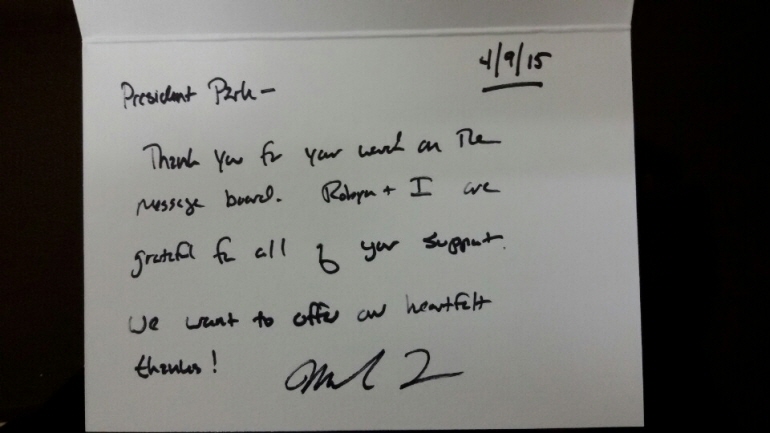 4/9/15
President Park—
Thank you for your work on the
message board. Robyn + I are
grateful for all of your support.
We want to offer our heartfelt
thanks!